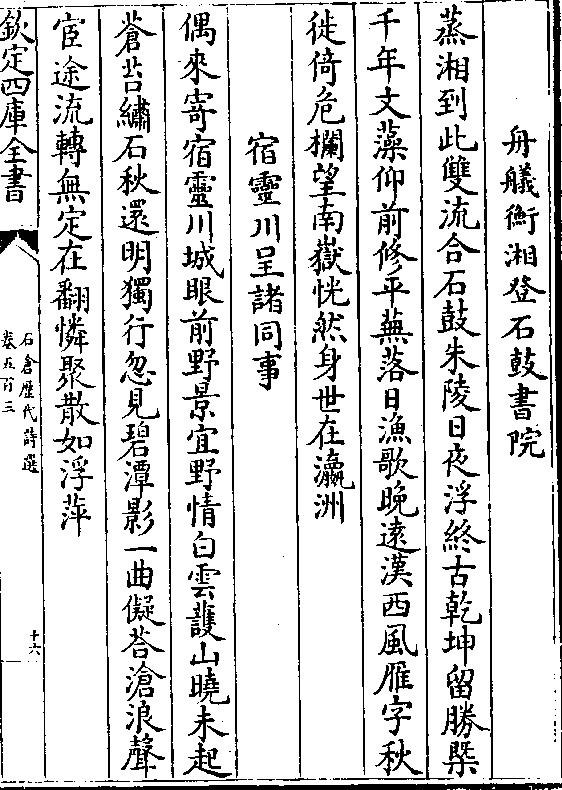 舟艤衡湘登石鼓書院
蒸湘到此雙流合石鼓朱陵日夜浮終古乾坤留勝槩
千年文藻仰前修平蕪落日漁歌晚遠漢西風雁字秋
徙倚危欄望南嶽恍然身世在瀛洲
宿靈川呈諸同事
偶來寄宿靈川城眼前野景宜野情白雲䕶山曉未起
蒼苔繡石秋還明獨行忽見碧潭影一曲儗荅滄浪聲
宦途流轉無定在翻憐聚散如浮萍
欽定四庫全書
石倉歷代詩選
卷五百三
十六